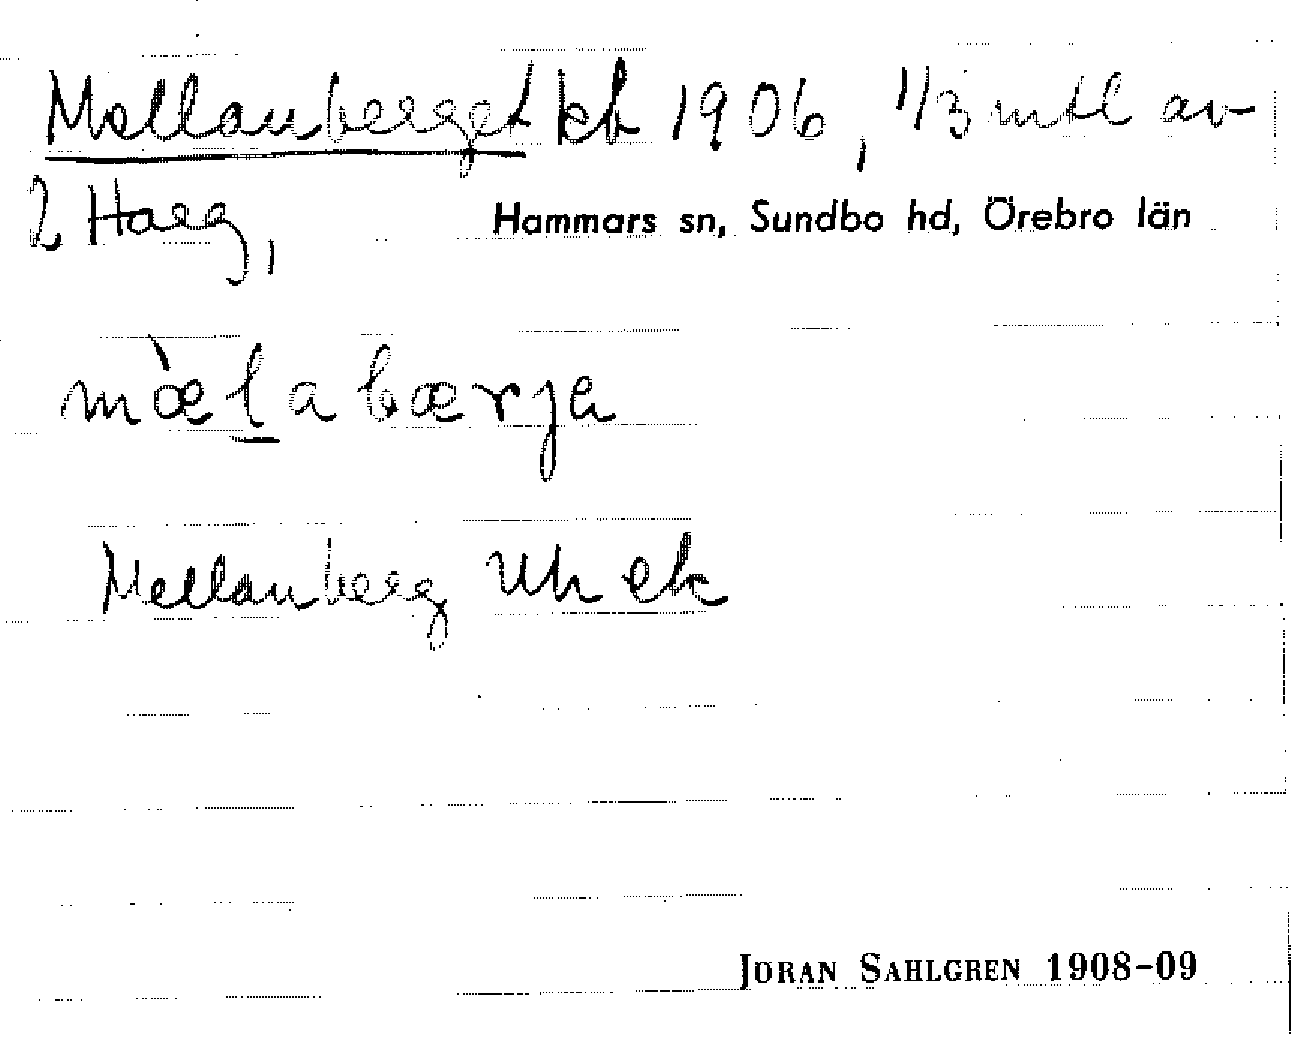 Mellanberget kb 1906, 1/3 mtl av
2 Harg,
Hammars sn, Sundbo hd, Örebro län
mæ̀labærja
Mellanberg Uh ek
JÖRAN SAHLGREN 1908-09